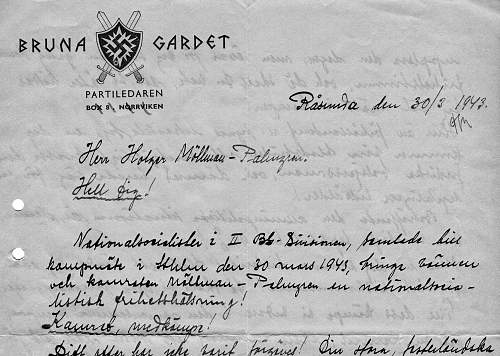 BRUNA GARDET
PARTILEDAREN
BOX 8 NORRVIKEN
Råsunda den 30/3 1943.
Herr Holger Möllman-Palmgren.
Hell Dig!
Nationalsocialister i II BG-Divisionen, samlade till
kampmöte i Sthlm den 30 mars 1943, bringa vännen
och kamraten Möllman-Palmgren en nationalsocia-
listisk frihetshälsning!
Kamrat, medkämpe!
Ditt offer har icke varit förgäves! Din stora,